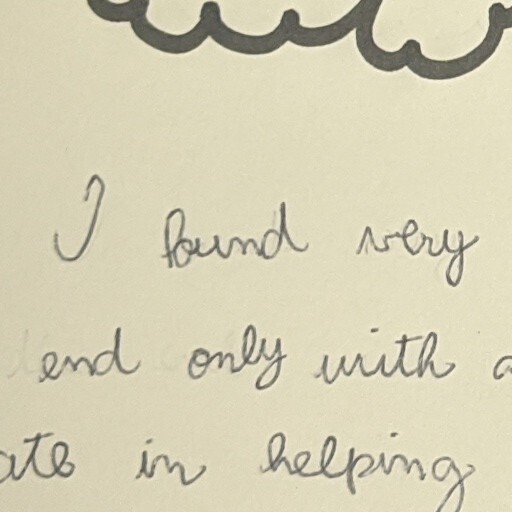 I found very
end only with a
ate in helping